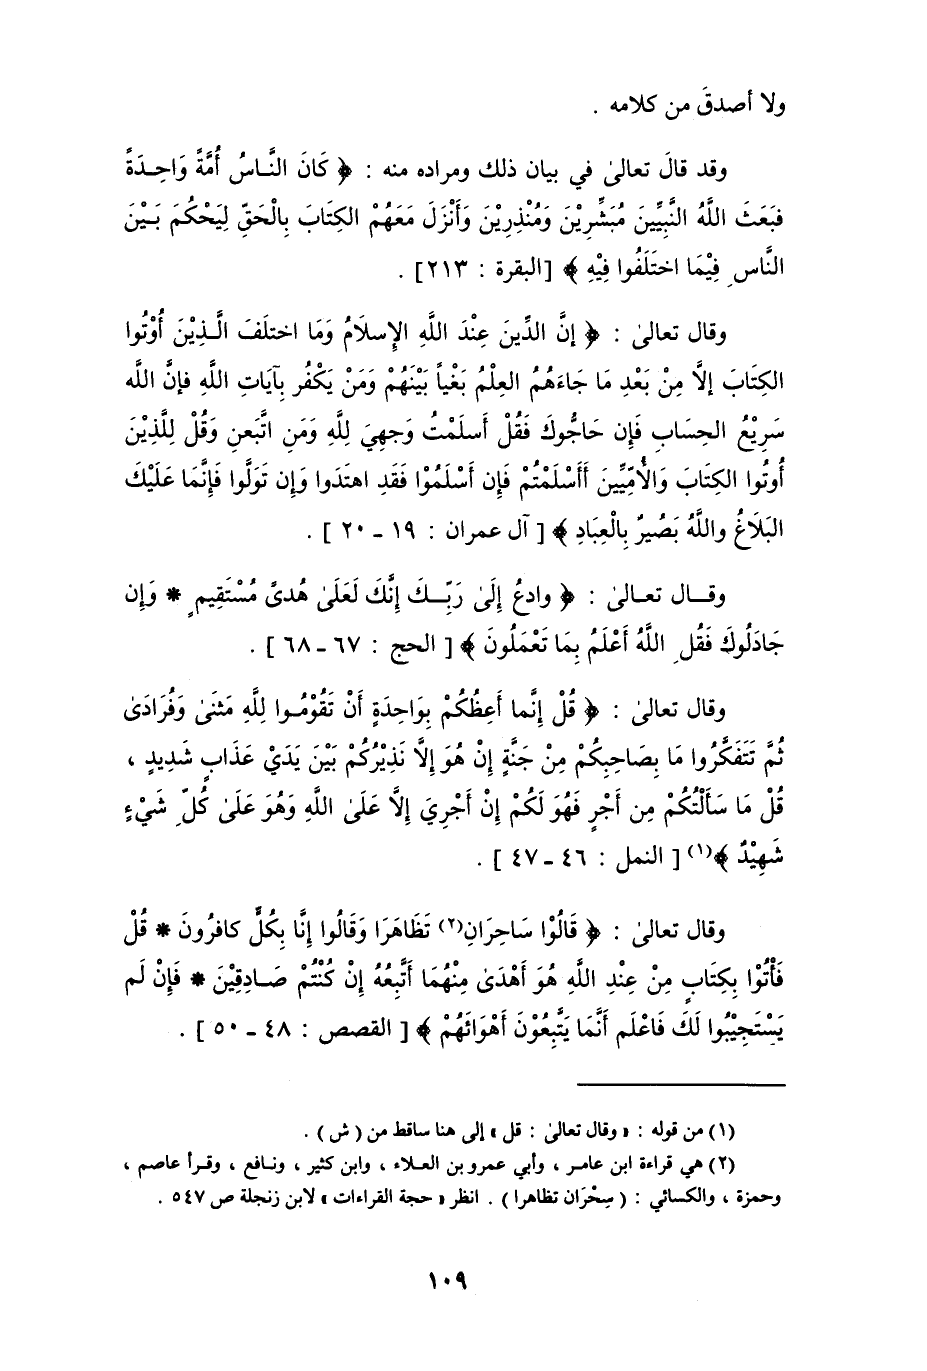 ولا أصدقَ من كلامه .
وقد قالَ تعالىٰ في بيان ذلك ومراده منه : ﴿ كَانَ النَّاسُ أُمَّةً وَاحِدَةً
فبَعَثَ اللَّهُ النَّبِيِّينَ مُبَشِّرِيْنَ وَمُنْذِرِيْنَ وَأَنْزَلَ مَعَهُمْ الكِتَابَ بِالْحَقِّ لِيَحْكُمَ بَيْنَ
النَّاسِ فِيْمَا اختَلَفُوا فِيْهِ ﴾ [البقرة : ٢١٣] .
وقال تعالىٰ : ﴿ إنَّ الدِّينَ عِنْدَ اللَّهِ الإِسلَامُ وَمَا اختلَفَ الَّذِيْنَ أُوْتُوا
الكِتَابَ إلَّا مِنْ بَعْدِ مَا جَاءَهُمُ العِلْمُ بَغْياً بَيْنَهُمْ وَمَنْ يَكْفُر بِآيَاتِ اللَّهِ فإنَّ اللَّه
سَرِيْعُ الحِسَابِ فَإِن حَاجُّوكَ فَقُلْ أَسلَمْتُ وَجهِيَ لِلَّهِ وَمَنِ اتَّبَعنِ وَقُلْ لِلَّذِيْنَ
أُوتُوا الكِتَابَ وَالأُمِّيِّينَ أَأَسْلَمْتُمْ فَإِن أَسْلَمُوْا فَقَدِ اهتَدَوا وَإِن تَوَلَّوا فَإِنَّمَا عَلَيْكَ
البَلَاغُ واللَّهُ بَصُيرٌ بِالْعِبَادِ ﴾ [ آل عمران : ١٩ ـ ٢٠ ] .
وقـال تعـالىٰ : ﴿ وادعُ إِلَىٰ رَبِّـكَ إِنَّكَ لَعَلَىٰ هُدىً مُسْتَقِيمٍ * وَإِن
جَادَلُوكَ فَقُلِ اللَّهُ أَعْلَمُ بِمَا تَعْمَلُونَ ﴾ [ الحج : ٦٧ ـ ٦٨ ] .
وقال تعالىٰ : ﴿ قُلْ إِنَّما أَعِظُكُمْ بِوَاحِدَةٍ أَنْ تَقُوْمُوا لِلَّهِ مَثنَىٰ وَفُرَادَىٰ
ثُمَّ تَتَفَكَّرُوا مَا بِصَاحِبِكُمْ مِنْ جَنَّةٍ إِنْ هُوَ إِلَّا نَذِيْرُكُمْ بَيْنَ يَدَيْ عَذَابٍ شَدِيدٍ ،
قُلْ مَا سَأَلْتُكُمْ مِن أَجْرٍ فَهُوَ لَكُمْ إِنْ أَجْرِيَ إِلَّا عَلَىٰ اللَّهِ وَهُوَ عَلَىٰ كُلِّ شَيْءٍ
شَهِيْدٌ ﴾(١) [ النمل : ٤٦ ـ ٤٧ ] .
وقال تعالىٰ : ﴿ قَالُوْا سَاحِرَانِ(٢) تَظَاهَرَا وَقَالُوا إِنَّا بِكُلٍّ كافرُونَ * قُلْ
فَأْتُوْا بِكِتَابٍ مِنْ عِنْدِ اللَّهِ هُوَ أَهْدَىٰ مِنْهُمَا أَتَّبِعُهُ إِنْ كُنْتُمْ صَادِقِيْنَ * فَإِنْ لَم
يَسْتَجِيْبُوا لَكَ فَاعْلَم أَنَّمَا يَتَّبِعُوْنَ أَهْوَائَهُمْ ﴾ [ القصص : ٤٨ ـ ٥٠ ] .
(١) من قوله : « وقال تعالىٰ : قل » إلى هنا ساقط من ( ش ) .
(٢) هي قراءة ابن عامر ، وأبي عمرو بن العلاء ، وابن كثير ، ونافع ، وقرأ عاصم ،
وحمزة ، والكسائي : ( سِحْرَان تظاهرا ) . انظر « حجة القراءات » لابن زنجلة ص ٥٤٧ .
١٠٩